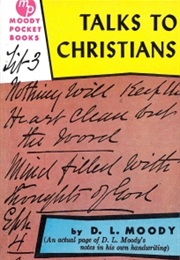 mp
MOODY
POCKET
BOOKS
TALKS TO
CHRISTIANS
Tit 3
Nothing Will Keep the
Heart Clean but
the Word
Mind filled with
thoughts of God
Eph
4
by D. L. MOODY
(An actual page of D. L. Moody's
notes in his own handwriting)